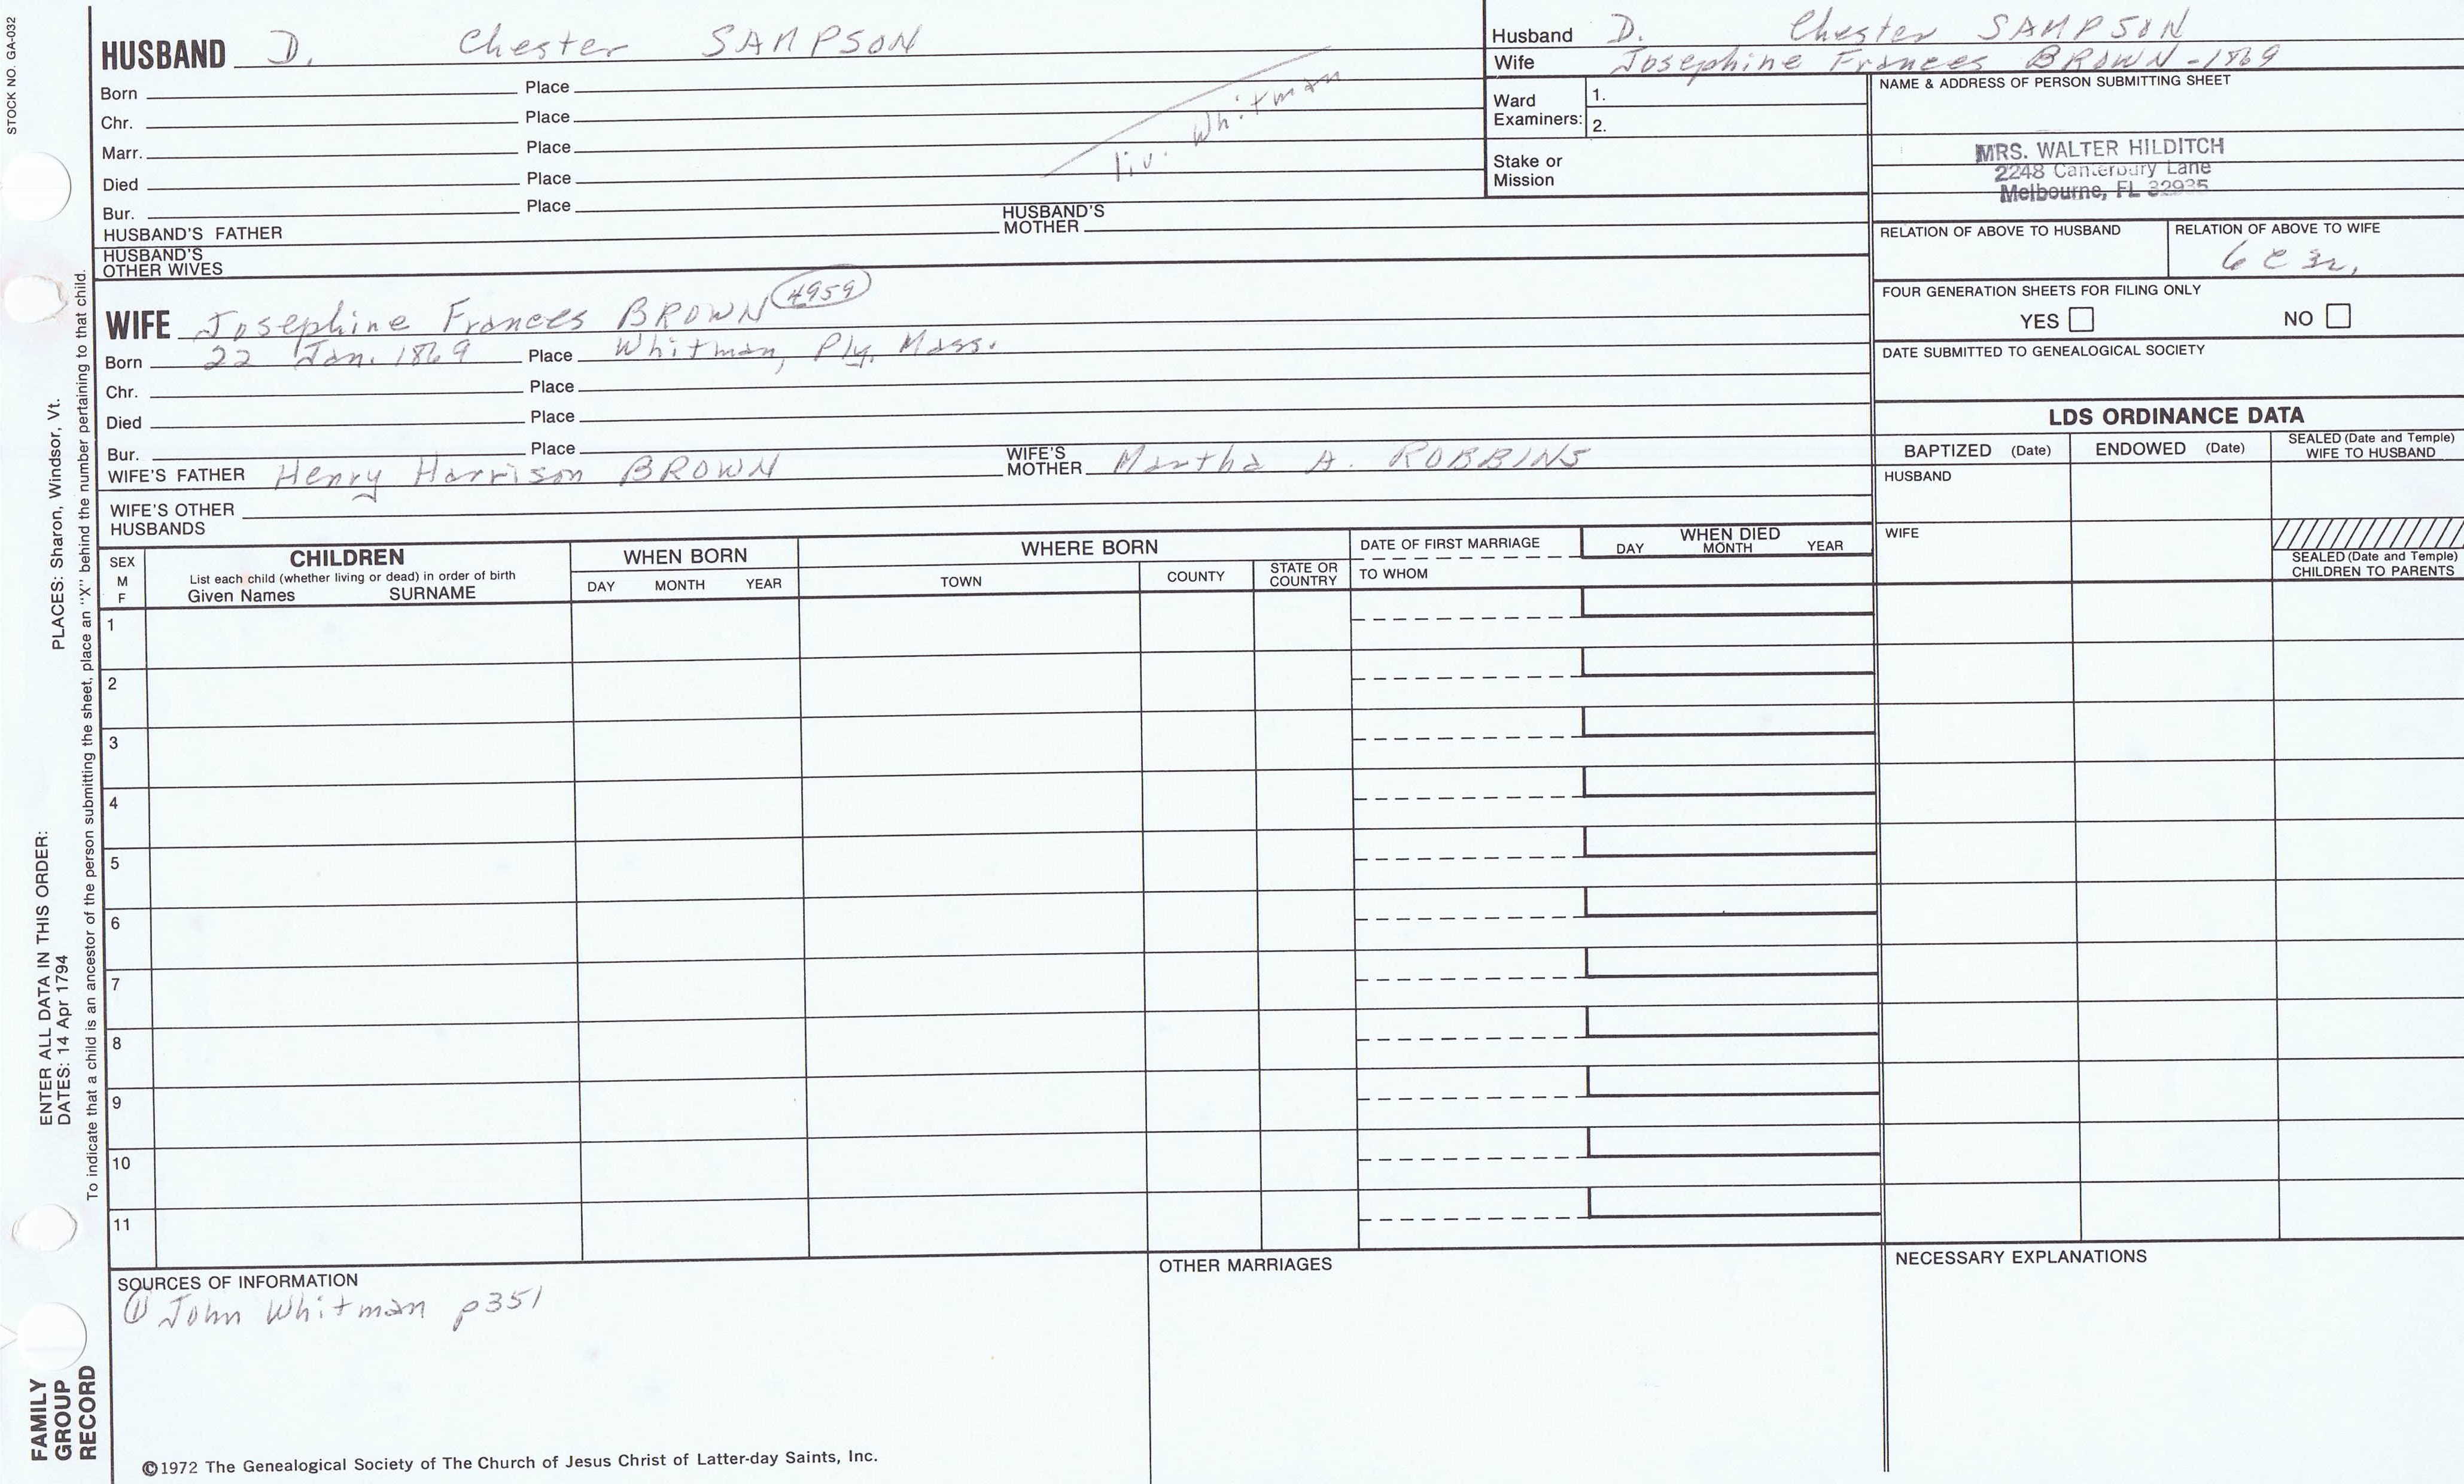 STOCK NO. GA-032
HUSBAND D. Chester SAMPSON
Born Place
Chr. Place
Marr. Place
Died Place
Bur. Place
liv. Whitman
HUSBAND'S FATHER HUSBAND'S MOTHER
HUSBAND'S OTHER WIVES
Husband D. Chester SAMPSON
Wife Josephine Frances BROWN - 1869
Ward Examiners: 1.
2.
Stake or Mission
NAME & ADDRESS OF PERSON SUBMITTING SHEET
MRS. WALTER HILDITCH
2248 Canterbury Lane
Melbourne, FL 32935
RELATION OF ABOVE TO HUSBAND
RELATION OF ABOVE TO WIFE
6C3r.
FOUR GENERATION SHEETS FOR FILING ONLY
YES NO
DATE SUBMITTED TO GENEALOGICAL SOCIETY
WIFE Josephine Frances BROWN 4959
Born 22 Jan. 1869 Place Whitman, Ply, Mass.
Chr. Place
Died Place
Bur. Place
WIFE'S FATHER Henry Harrison BROWN WIFE'S MOTHER Martha A. ROBBINS
WIFE'S OTHER HUSBANDS
LDS ORDINANCE DATA
BAPTIZED (Date) ENDOWED (Date) SEALED (Date and Temple) WIFE TO HUSBAND
HUSBAND
WIFE
SEALED (Date and Temple) CHILDREN TO PARENTS
SEX M F
CHILDREN
List each child (whether living or dead) in order of birth
Given Names SURNAME
WHEN BORN
DAY MONTH YEAR
WHERE BORN
TOWN COUNTY STATE OR COUNTRY
DATE OF FIRST MARRIAGE
TO WHOM
WHEN DIED
DAY MONTH YEAR
1
2
3
4
5
6
7
8
9
10
11
SOURCES OF INFORMATION
① John Whitman p351
OTHER MARRIAGES
NECESSARY EXPLANATIONS
©1972 The Genealogical Society of The Church of Jesus Christ of Latter-day Saints, Inc.
FAMILY
GROUP
RECORD
ENTER ALL DATA IN THIS ORDER:
DATES: 14 Apr 1794
PLACES: Sharon, Windsor, Vt.
To indicate that a child is an ancestor of the person submitting the sheet, place an "X" behind the number pertaining to that child.